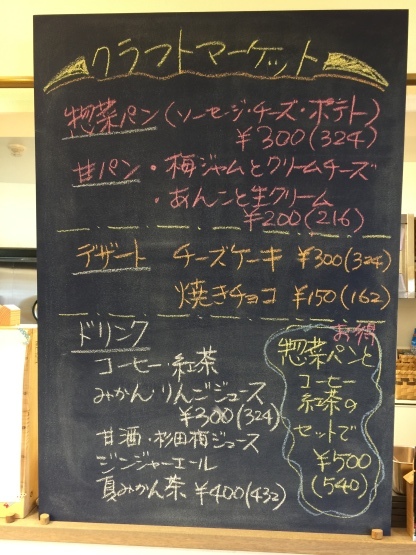 クラフトマーケット
惣菜パン(ソーセージ・チーズ・ポテト)
¥300(324)
甘パン・梅ジャムとクリームチーズ
・あんこと生クリーム
¥200(216)
デザート チーズケーキ ¥300(324)
焼きチョコ ¥150(162)
ドリンク
コーヒー・紅茶
みかん りんごジュース
¥300(324)
甘酒・杉田梅ジュース
ジンジャーエール
夏みかん茶 ¥400(432)
お得
惣菜パンと
コーヒー
紅茶の
セットで
¥500
(540)